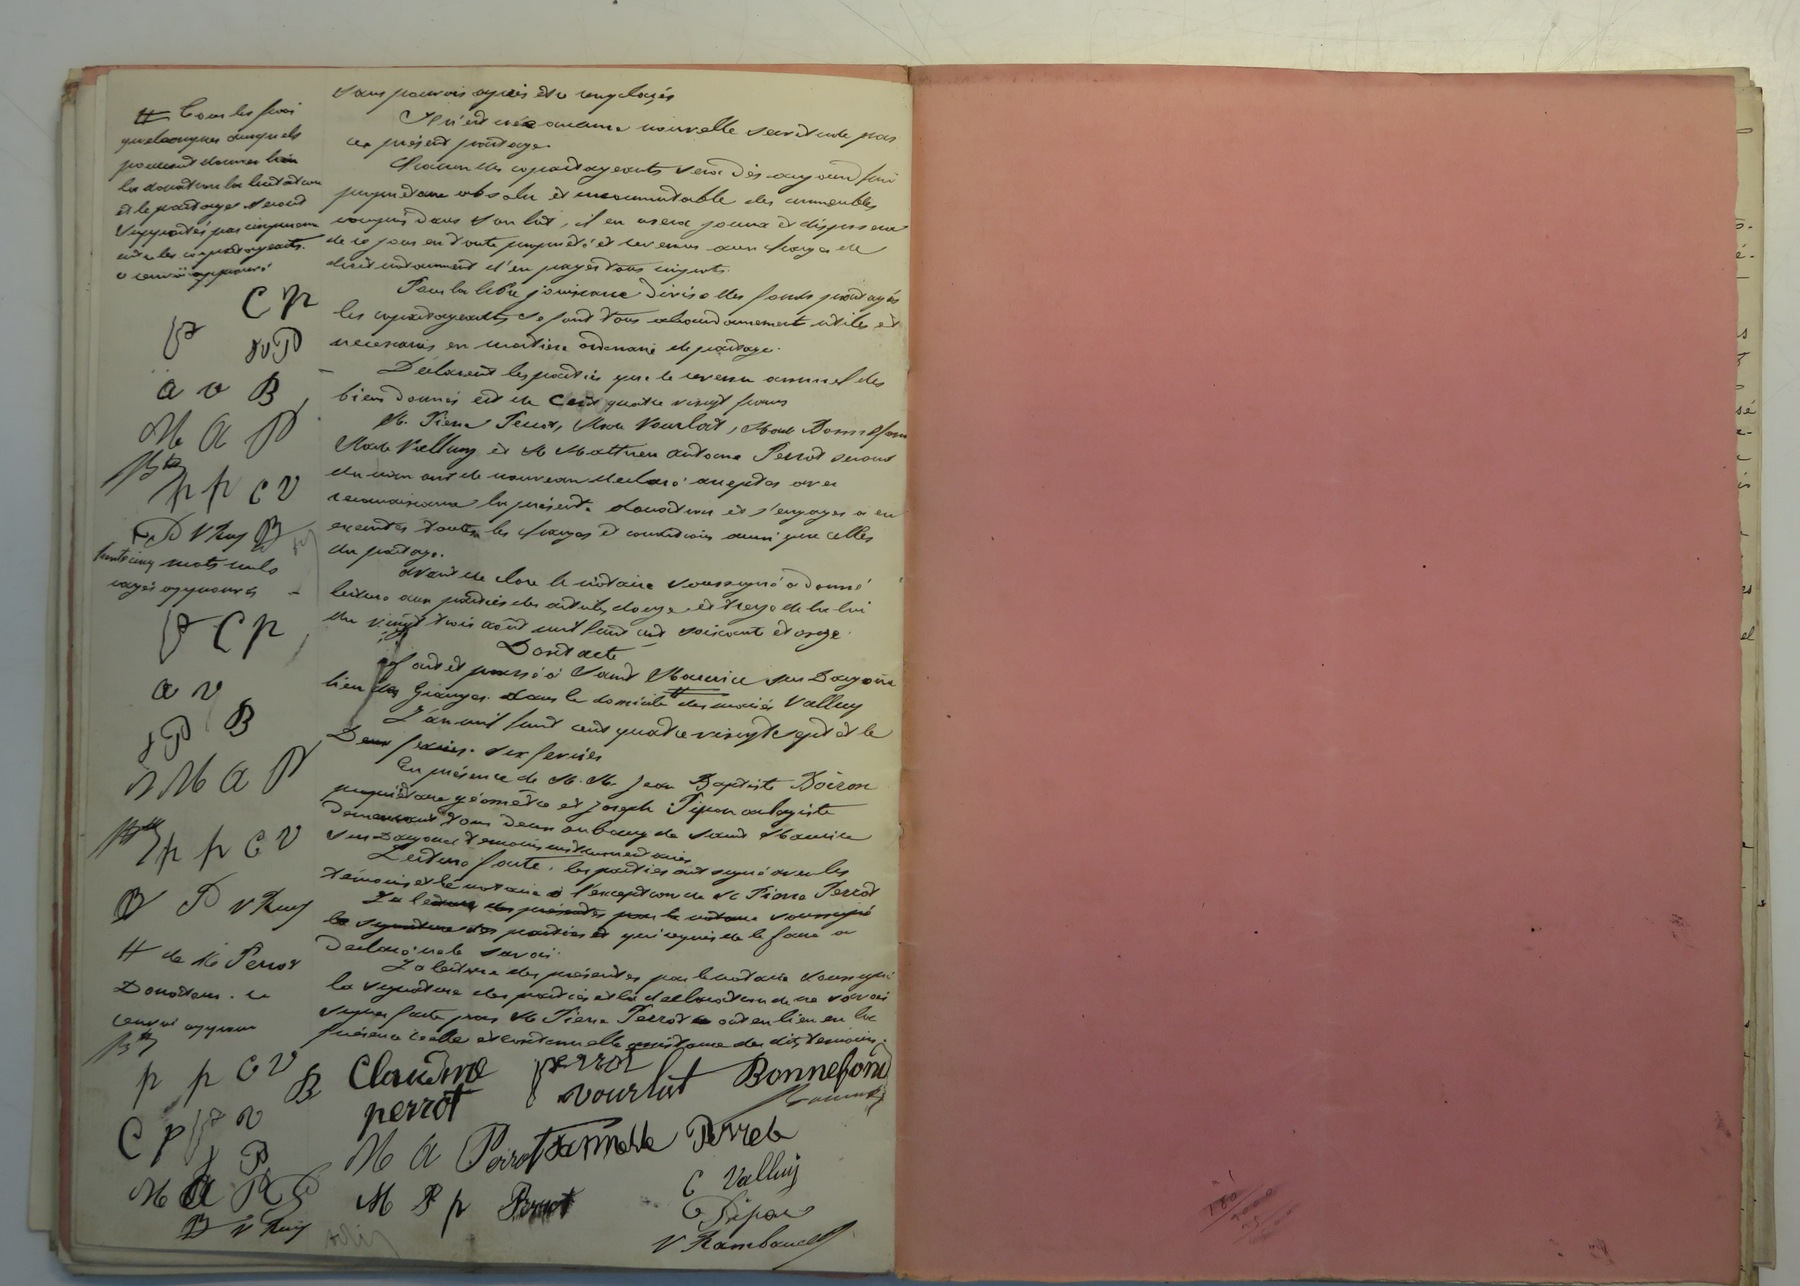 # Tous les frais
quelconques auxquels
pourront donner lieu
la donation la licitation
et le partage seront
supportés par cinquième
entre les copartageants.
renvoi approuvé
C P
a v B
M A P
p p C V
trente cinq mots nuls
rayés approuvés
C P
a v
B
M A P
p p C V
# de M Perrot
Donateur. ce
renvoi approuvé
p p C V B
C P
sans pouvoir après être remplacés
Il n'est créé aucune nouvelle servitude par
ce présent partage.
Chacun des copartageants sera dès aujourd'hui
propriétaire absolu et incommutable des immeubles
compris dans son lot, il en usera jouira et disposera
de ce jour en toute propriété et revenus aux charges de
droit notamment d'en payer tous impots.
Pour la libre jouissance divise des fonds partagés
les copartageants se font tous abandonnement utiles et
nécessaires en matière ordinaire de partage.
Déclarent les parties que le revenu annuel des
biens donnés est de Cent quatre vingt francs
M. Pierre Perrot, Made Vourlat, Made Bonnefond
Made Valluy et M Matthieu Antoine Perrot
de nouveau déclaré accepter avec
reconnaissance la présente donation et s'engager à en
exécuter toutes les charges et conditions ainsi que celles
du partage.
Avant de clore le notaire soussigné a donné
lecture aux parties des articles douze et treize de la loi
du vingt trois août mil huit cent soixante et onze.
Dont acte
Fait et passé à Saint Maurice sur Dargoire
lieu des Granges dans le domicile # des mariés Valluy
L'an mil huit cent quatre vingt sept et le
Deux février. six février
En présence de M. M. Jean Baptiste Boiron
propriétaire géomètre et Joseph Pipon aubergiste
demeurant tous deux au bourg de Saint Maurice
sur Dargoire témoins instrumentaires
Lecture faite, les parties ont signé avec les
témoins et le notaire à l'exception de M Pierre Perrot
La lecture des présentes par le notaire soussigné
la signature des parties et qui requis de le faire a
déclaré ne le savoir.
La lecture des présentes par le notaire soussigné
la signature des parties et la déclaration de ne savoir
signer faite par M Pierre Perrot ont eu lieu en la
présence réelle et continuelle assistance des dits témoins.
Claudine perrot Bonnefond
perrot vourlat
M A Perrot
M P p Perrot C Valluy
Pipon